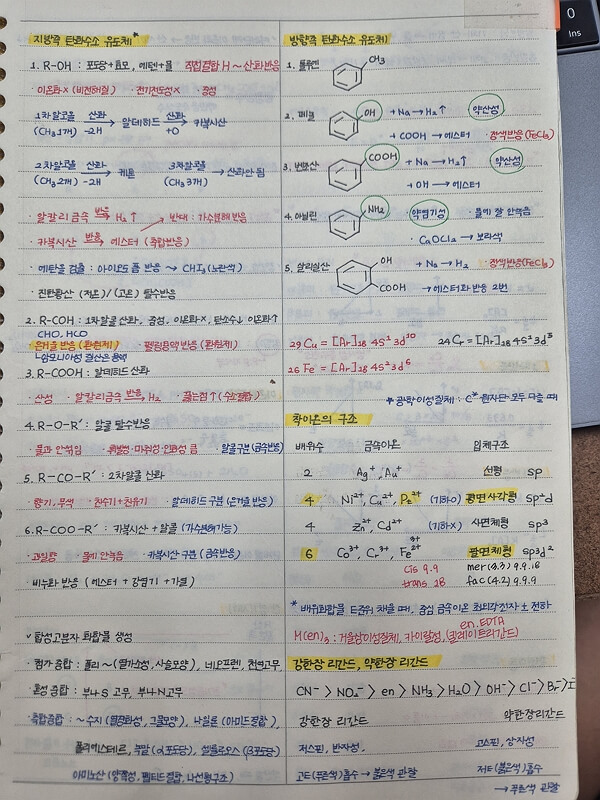 지방족 탄화수소 유도체*
1. R-OH : 포도당+효모, 에텐+물 직접결합 H ~ 산화반응
· 이온화× (비전해질) · 전기전도성× · 중성
1차알코올 산화→ 알데히드 산화→ 카복시산
(CH₃ 1개) -2H +O
2차알코올 산화→ 케톤 3차알코올 → 산화안 됨
(CH₃ 2개) -2H (CH₃ 3개)
· 알칼리금속 반응→ H₂↑ 반대 : 가수분해 반응
· 카복시산 반응→ 에스터 (축합반응)
· 에탄올 검출 : 아이오도폼 반응 → CHI₃ (노란색)
· 진한황산 (저온)/(고온) 탈수반응
2. R-COH : 1차알코올 산화, 중성, 이온화×, 탄소수↓ 이온화↑
CHO, HCO
· 은거울 반응 (환원제) · 펠링용액 반응 (환원제)
↳암모니아성 질산은용액
3. R-COOH : 알데히드 산화
· 산성 · 알칼리금속 반응→ H₂ · 끓는점↑ (수소결합)
4. R-O-R' : 알코올 탈수반응
· 물과 안섞임 · 휘발성·마취성·인화성 큼 · 알코올구분 (금속반응)
5. R-CO-R' : 2차알코올 산화
· 향기, 무색 · 친수기+친유기 · 알데히드 구분 (은거울 반응)
6. R-COO-R' : 카복시산 + 알코올 (가수분해가능)
· 과일향 · 물에 안녹음 · 카복시산 구분 (금속반응)
· 비누화 반응 (에스터 + 강염기 + 가열)
✓합성고분자 화합물 생성
· 첨가 중합 : 폴리~ (열가소성, 사슬모양), 네오프렌, 천연고무
· 혼성 중합 : 부나S 고무, 부나N고무
· 축합중합 : ~수지 (열경화성, 그물모양), 나일론 (아미드결합),
폴리에스테르, 녹말 (α포도당), 셀룰로오스 (β포도당)
아미노산 (양쪽성, 펩티드결합, 나선형구조)
방향족 탄화수소 유도체
1. 톨루엔 CH₃
2. 페놀 OH + Na → H₂↑ 약산성
+ COOH → 에스터 · 정색반응 (FeCl₃)
3. 벤조산 COOH + Na → H₂↑ 약산성
+ OH → 에스터
4. 아닐린 NH₂ 약염기성 · 물에 잘 안녹음
· CaOCl₂ → 보라색
5. 살리실산 OH + Na → H₂ · 정색반응(FeCl₃)
COOH → 에스터화 반응 2번
29 Cu = [Ar]₁₈ 4S¹ 3d¹⁰ 24 Cr = [Ar]₁₈ 4S¹ 3d⁵
26 Fe = [Ar]₁₈ 4S² 3d⁶
* 광학이성질체 : C* 원자단 모두 다를 때
착이온의 구조
배위수 금속이온 입체구조
2 Ag⁺, Au⁺ 선형 sp
4 Ni²⁺, Cu²⁺, Pt²⁺ (기하O) 평면사각형 sp²d
4 Zn²⁺, Cd²⁺ (기하X) 사면체형 sp³
6 Co³⁺, Cr³⁺, Fe²⁺ 팔면체형 sp³d²
3+
cis 9.9 mer(4.3) 9.9.18
trans 18 fac(4.2) 9.9.9
* 배위화합물 d준위 채울 때, 중심 금속이온 최외각전자 ± 전하
en. EDTA
M(en)₃ : 거울상이성질체, 카이랄성, (킬레이트리간드)
강한장 리간드, 약한장 리간드
CN⁻ > NO₂⁻ > en > NH₃ > H₂O > OH⁻ > Cl⁻ > Br⁻ > I
강한장 리간드 약한장리간드
저스핀, 반자성, 고스핀, 상자성
고E (푸른색) 흡수 → 붉은색 관찰 저E (붉은색) 흡수
→ 푸른색 관찰
0
Ins